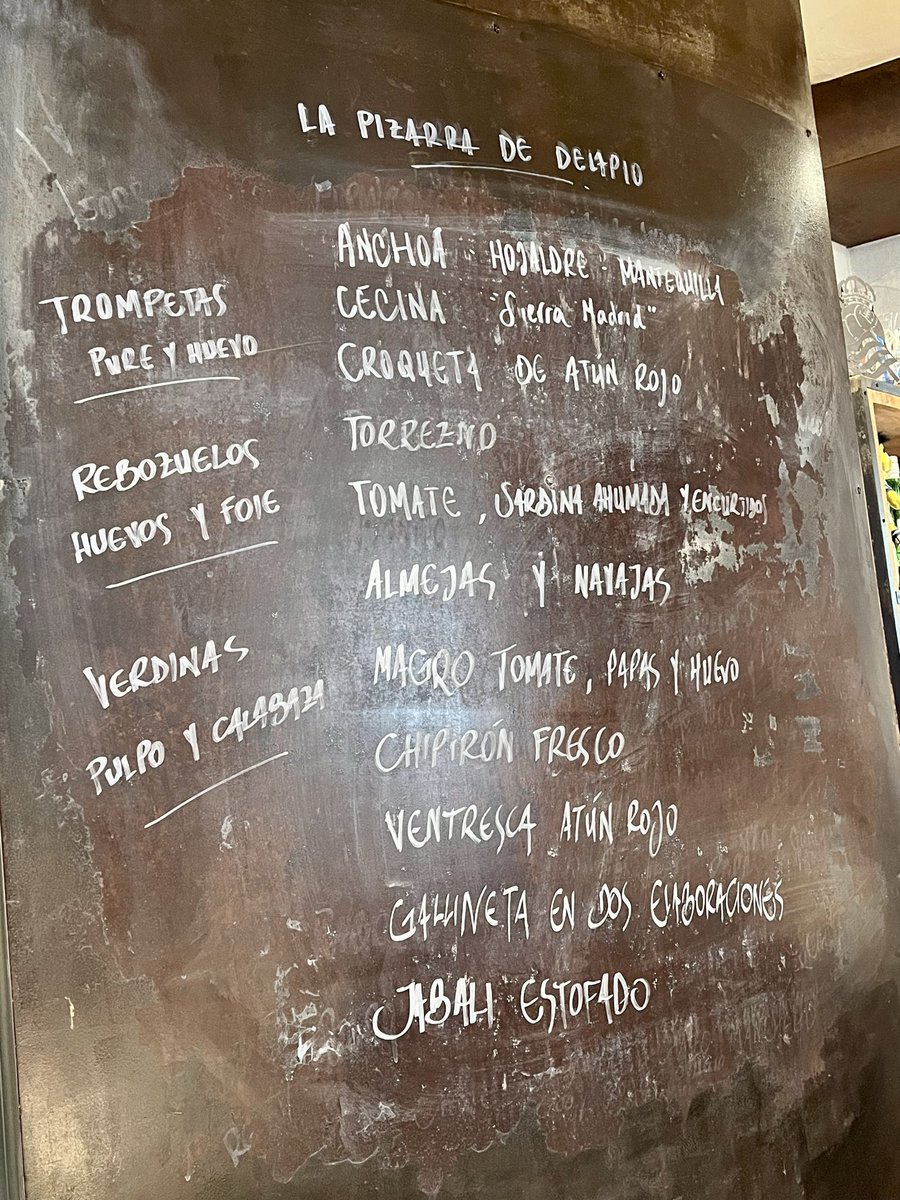 LA PIZARRA DE DELAPIO
TROMPETAS
PURE Y HUEVO
REBOZUELOS
HUEVOS Y FOIE
VERDINAS
PULPO Y CALABAZA
ANCHOA - HOJALDRE - MANTEQUILLA
CECINA "Sierra Madrid"
CROQUETA DE ATÚN ROJO
TORREZNO
TOMATE, SARDINA AHUMADA Y ENCURTIDOS
ALMEJAS Y NAVAJAS
MAGRO TOMATE, PAPAS Y HUEVO
CHIPIRÓN FRESCO
VENTRESCA ATÚN ROJO
GALLINETA EN DOS ELABORACIONES
JABALI ESTOFADO